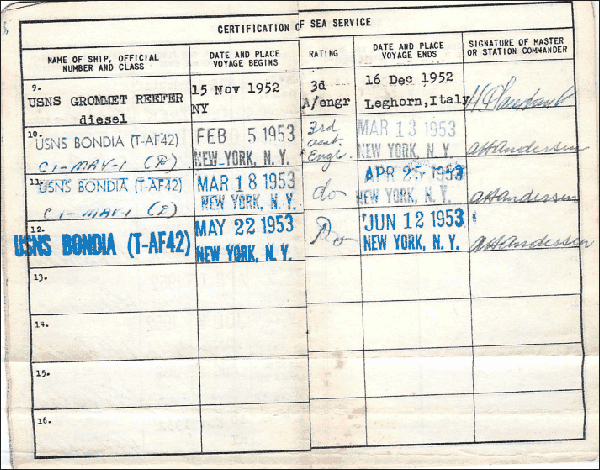 CERTIFICATION OF SEA SERVICE
NAME OF SHIP, OFFICIAL NUMBER AND CLASS
DATE AND PLACE VOYAGE BEGINS
RATING
DATE AND PLACE VOYAGE ENDS
SIGNATURE OF MASTER OR STATION COMMANDER
9.
USNS GROMMET REEFER
diesel
15 Nov 1952
NY
3d
A/engr
16 Dec 1952
Leghorn, Italy
10.
USNS BONDIA (T-AF42)
C1-MAV-1 (R)
FEB 5 1953
NEW YORK, N. Y.
3rd
Engr
MAR 13 1953
NEW YORK, N. Y.
AHAndersen
11.
USNS BONDIA (T-AF42)
C1-MAV-1 (R)
MAR 18 1953
NEW YORK, N. Y.
do
APR 25 1953
NEW YORK, N. Y.
AHAndersen
12.
USNS BONDIA (T-AF42)
MAY 22 1953
NEW YORK, N. Y.
Do
JUN 12 1953
NEW YORK, N. Y.
AHAndersen
13.
14.
15.
16.